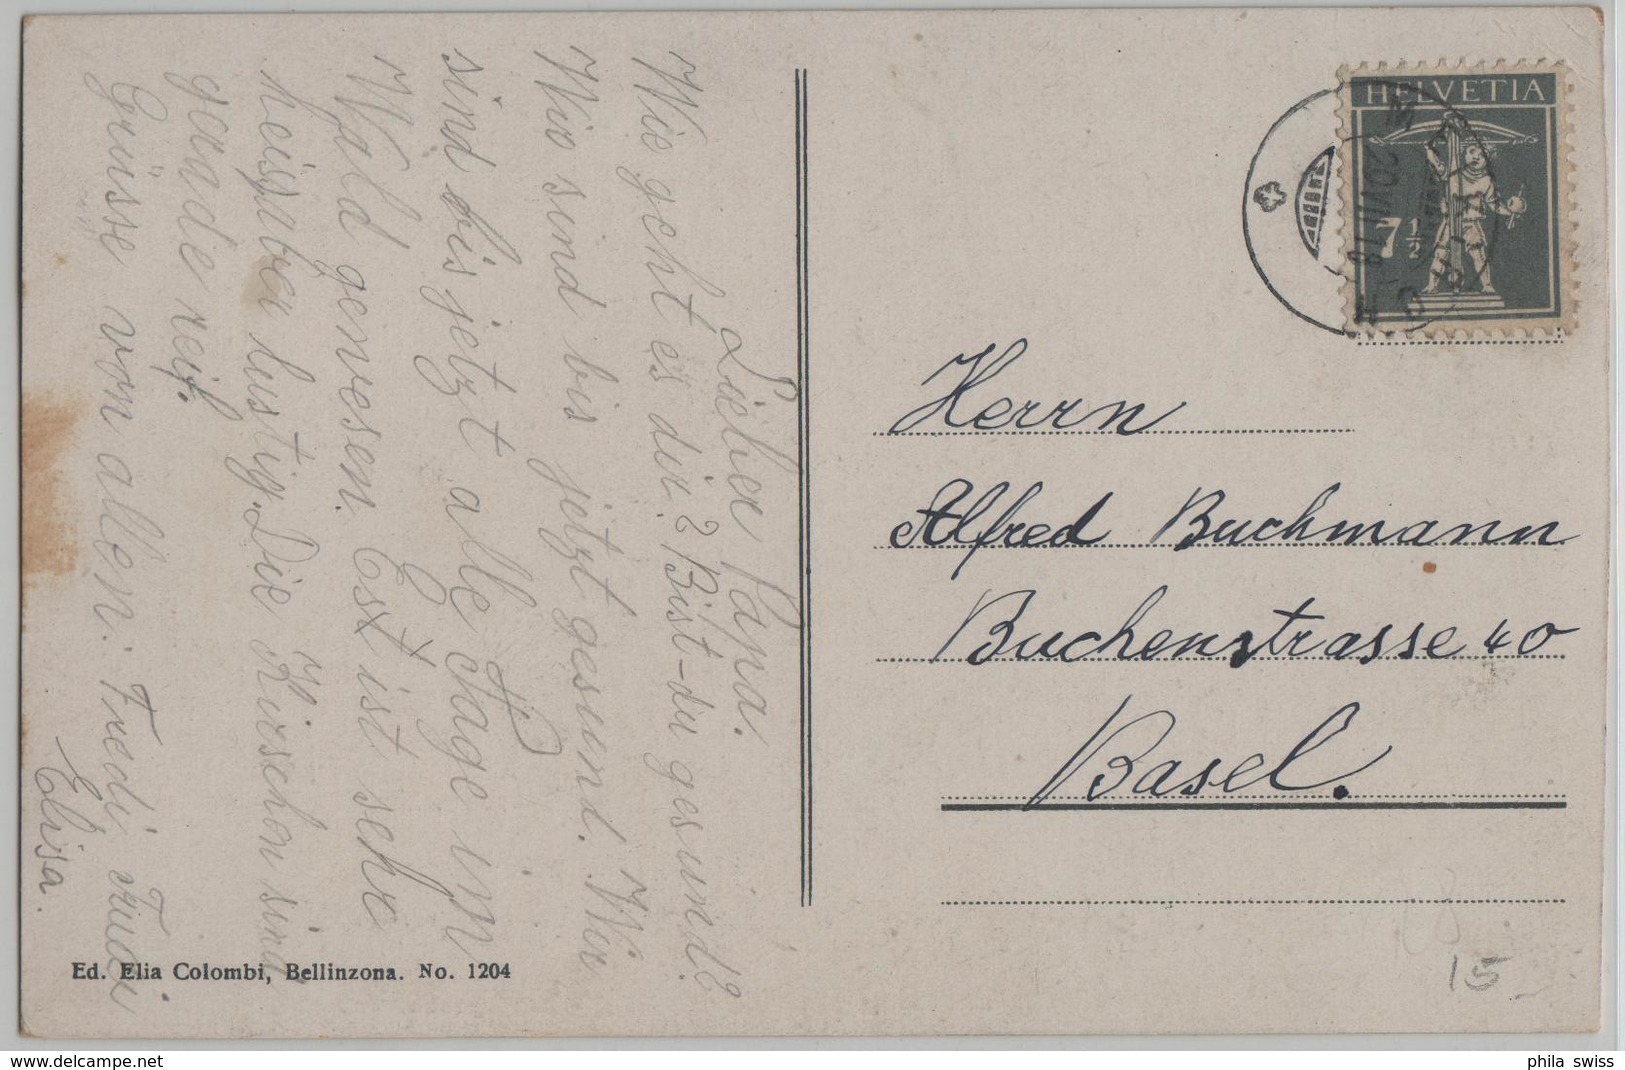 Lieber Papa.
Wie geht es dir? Bist-du gesund?
Wir sind bis jetzt gesund. Wir
sind bis jetzt alle Tage im
Wald gewesen. Est ist sehr
heiss, aber lustig. Die Kirschen sind
gerade reif.
Grüsse von allen. Fredi Trudi
Elisa.
HELVETIA
7½
Herrn
Alfred Buchmann
Buchenstrasse 40
Basel.
15
Ed. Elia Colombi, Bellinzona. No. 1204
www.delcampe.net
phila_swiss